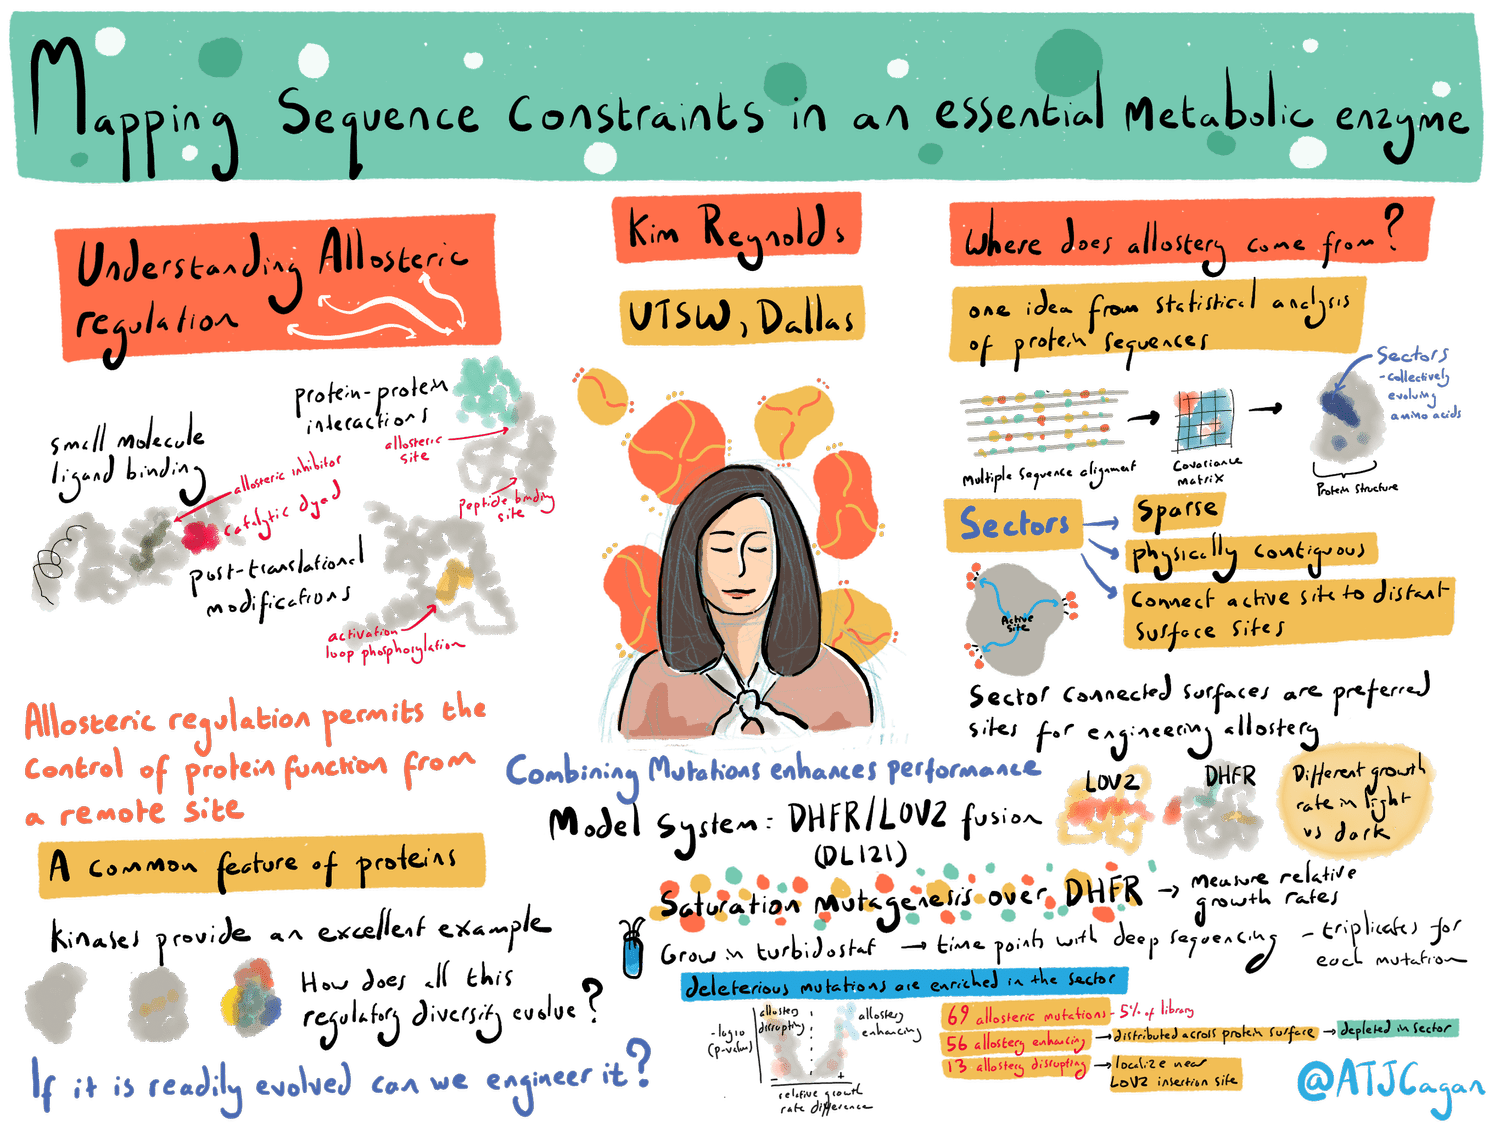 Mapping Sequence Constraints in an essential Metabolic enzyme
Understanding Allosteric
regulation
small molecule
ligand binding
allosteric inhibitor
catalytic dyad
protein-protein
interactions
allosteric
site
peptide binding
site
post-translational
modifications
activation
loop phosphorylation
Allosteric regulation permits the
control of protein function from
a remote site
A common feature of proteins
Kinases provide an excellent example
How does all this
regulatory diversity evolve?
If it is readily evolved can we engineer it?
Kim Reynolds
UTSW, Dallas
Where does allostery come from?
one idea from statistical analysis
of protein sequences
Multiple sequence alignment
Covariance
matrix
Sectors
-collectively
evolving
amino acids
Protein structure
Sectors
Sparse
physically contiguous
Connect active site to distant
surface sites
Active
site
Sector connected surfaces are preferred
sites for engineering allostery
Combining Mutations enhances performance
Model System: DHFR/LOV2 fusion
(DL121)
LOV2
DHFR
Different growth
rate in light
vs dark
Saturation Mutagenesis over DHFR → measure relative
growth rates
Grow in turbidostat → time points with deep sequencing - triplicates for
each mutation
deleterious mutations are enriched in the sector
-log10
(p-value)
allostery
disrupting
allostery
enhancing
- +
relative growth
rate difference
69 allosteric mutations - 5% of library
56 allostery enhancing → distributed across protein surface → depleted in sector
13 allostery disrupting → localize near
LOV2 insertion site
@ATJCagan